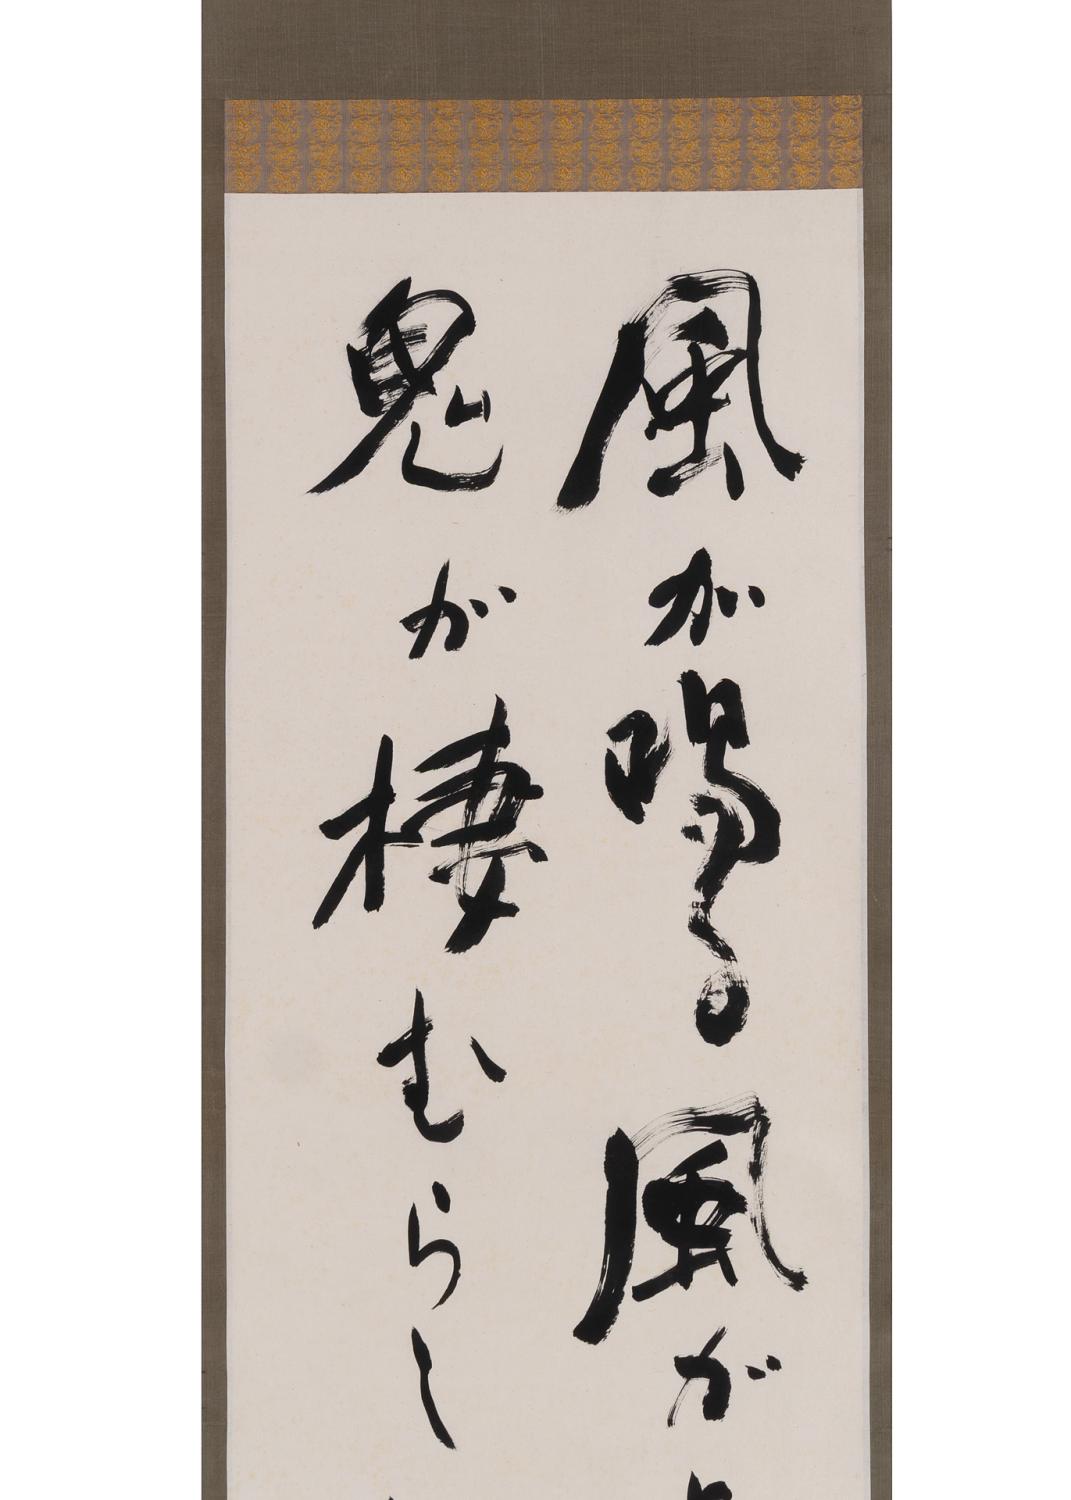 風が鳴る風が
鬼が棲むらし